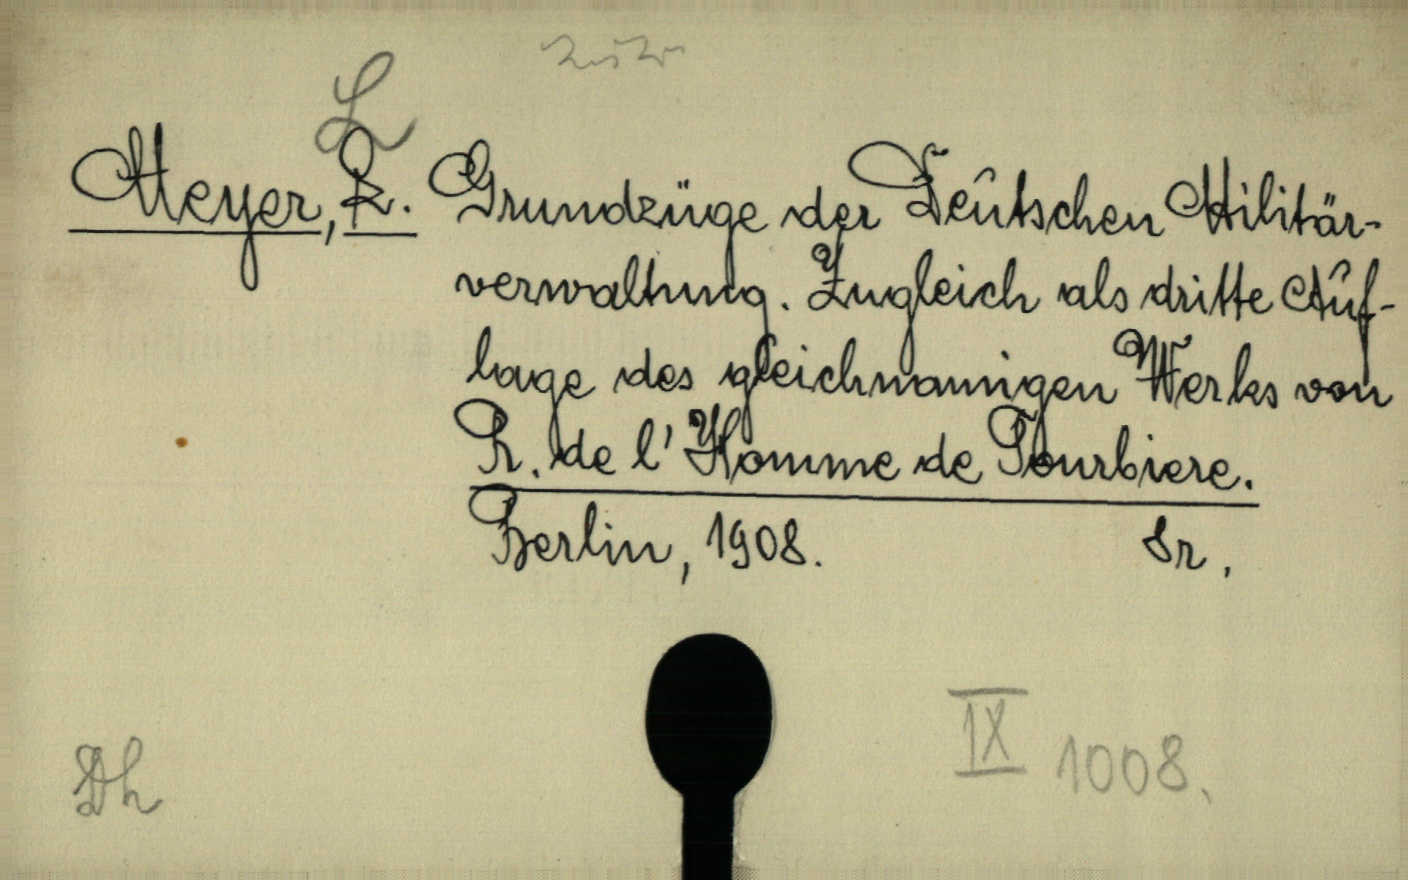 L
Meyer, R. Grundzüge der Deutschen Militär-
verwaltung. Zugleich als dritte Auf-
lage des gleichnamigen Werks von
R. de l'Homme de Courbiere.
Berlin, 1908. Sr.
Dh
IX 1008.